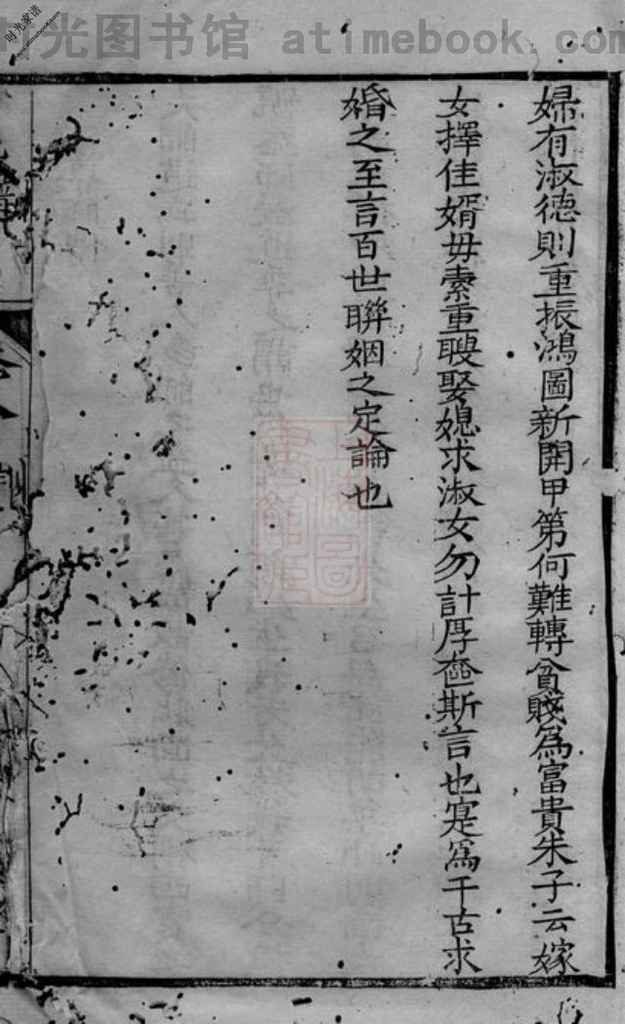 时光图书馆 atimebook.com
时光家谱
婦有淑德則重振鴻圖新開甲第何難轉貧賤為富貴朱子云嫁
女擇佳婿毋索重聘娶媳求淑女勿計厚奩斯言也寔為千古求
婚之至言百世聯姻之定論也